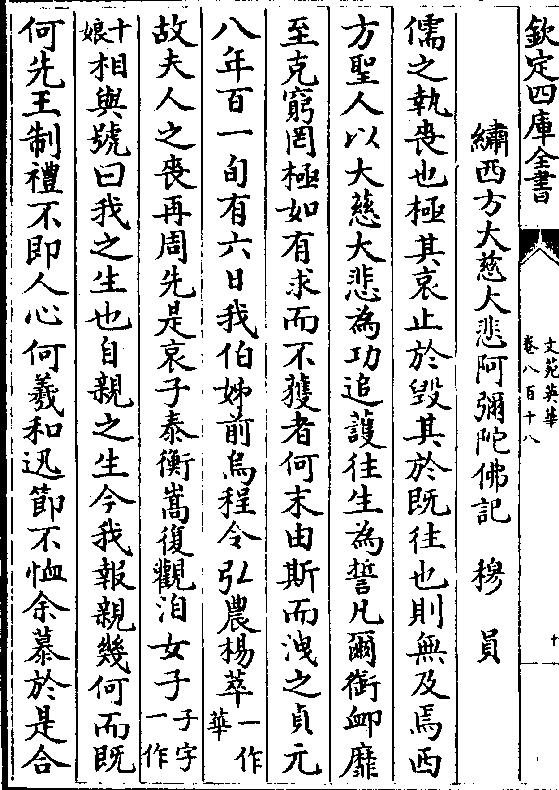 欽定四庫全書
文苑英華
卷八百十八
十
繡西方大慈大悲阿彌陀佛記　穆員
儒之執喪也極其哀止於毀其於既往也則無及焉西
方聖人以大慈大悲為功追護往生為誓凡爾銜衈靡
至克窮罔極如有求而不獲者何末由斯而洩之貞元
八年百一旬有六日我伯姊前烏程令弘農楊萃一作華
故夫人之喪再周先是哀子泰衡嵩復觀洎女子子字一作
十娘相與號曰我之生也自親之生今我報親幾何而既
何先王制禮不即人心何羲和迅節不恤余慕於是合